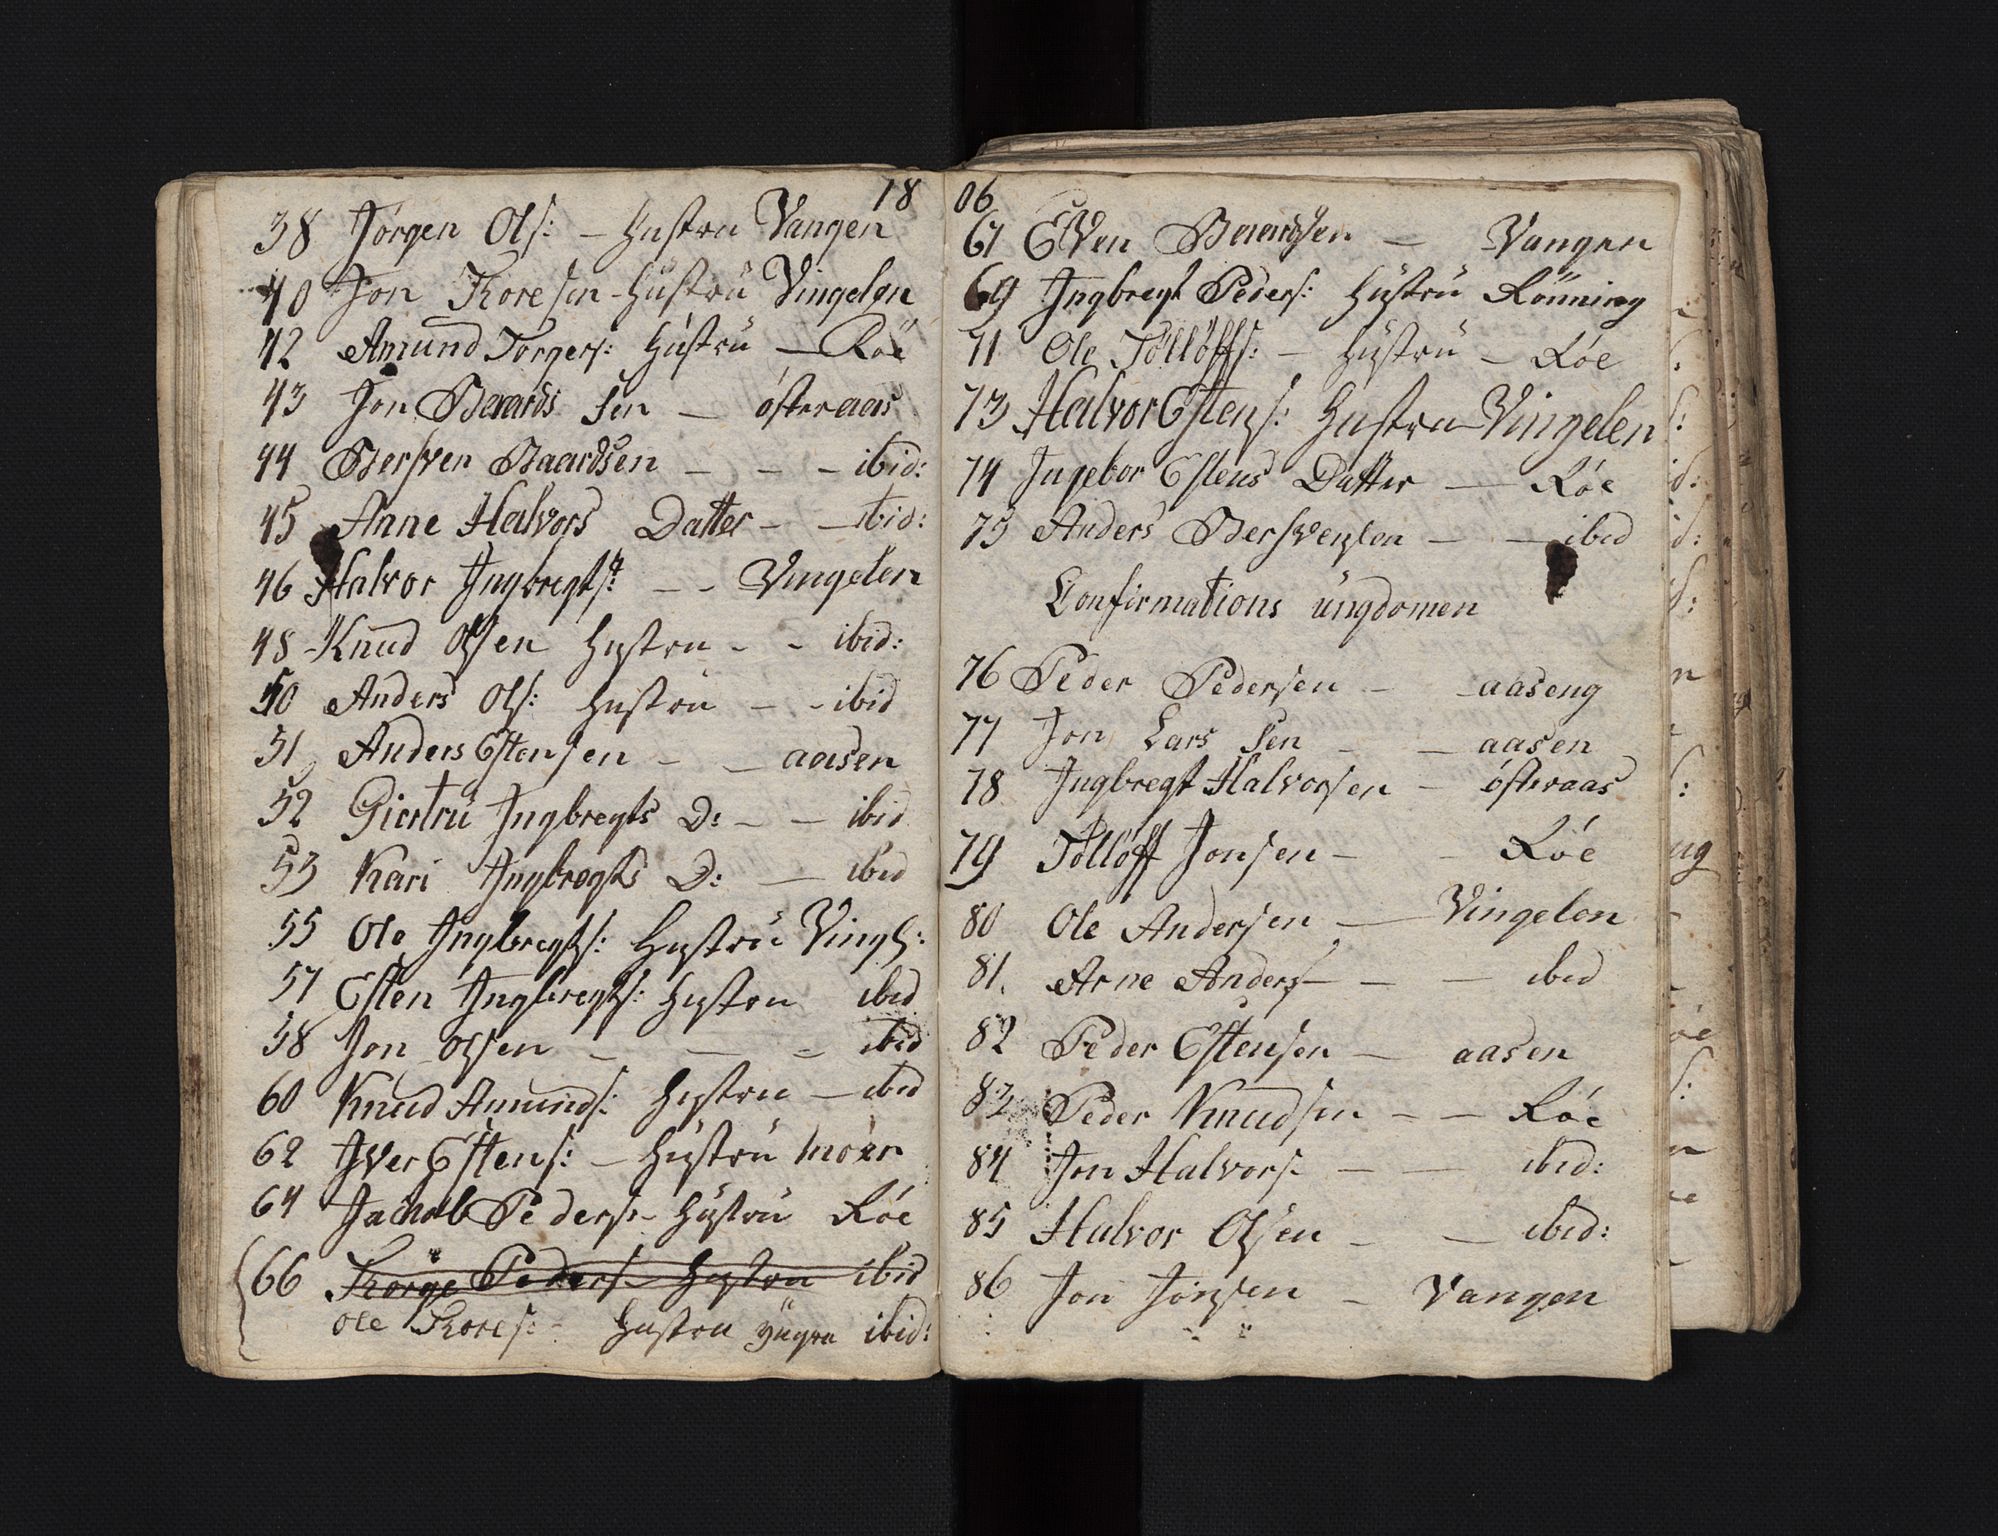 18
38 Jörgen Ols: – Hustru Vangen
40 Jon Toresen – Hustrü Vingelen
42 Amund Torgers: Hüstrü – Röe
43 Jon Baards sen – österaas
44 Bersven Baardsen – – – ibid:
45 Anne Halvors Datter – – ibid:
46 Halvor Jngbregts: – – Vingelen
48 Knud Olsen Hustru – – ibid:
50 Anders Ols: Hustru – – ibid
51 Anders Estensen – – aasen
52 Giertru Jngbregts D: – – ibid
53 Kari Jngbregts D: – ibid
55 Ole Jngbregts: Hustrü Vingls:
57 Esten Jngbregts: Hustru ibid
58 Jon Olsen – – – ibid
60 Knud Amunds: Hustru – ibid
62 Jver Estens: – Hüstrü moen
64 Jachob Peders: – Hüstrü Röe
66 Torge Peders Hustru ibid
Ole Tores: – Hustru yngre ibid:
06
67 Even Baardsen – Vangen
69 Jngbregt Peders: Hüstrü Rönning
71 Ole Tollöffs: – Hüstrü – Röe
73 Halvor Estens: Hustru Vingelen
74 Jngebor Estens Datter – Röe
75 Anders Bersvensen – – ibid
Confirmations üngdomen
76 Peder Pedersen – – aaseng
77 Jon Lars sen – – aasen
78 Jngbregt Halvorsen – österaas
79 Tollöff Jonsen – – Röe
80 Ole Andersen – Vingelen
81. Arne Anders – – – ibid
82 Peder Estensen – aasen
83 Peder Knudsen – – Röe
84 Jon Halvors: – – ibid:
85 Halvor Olsen – – ibid:
86 Jon Jönsen – Vangen